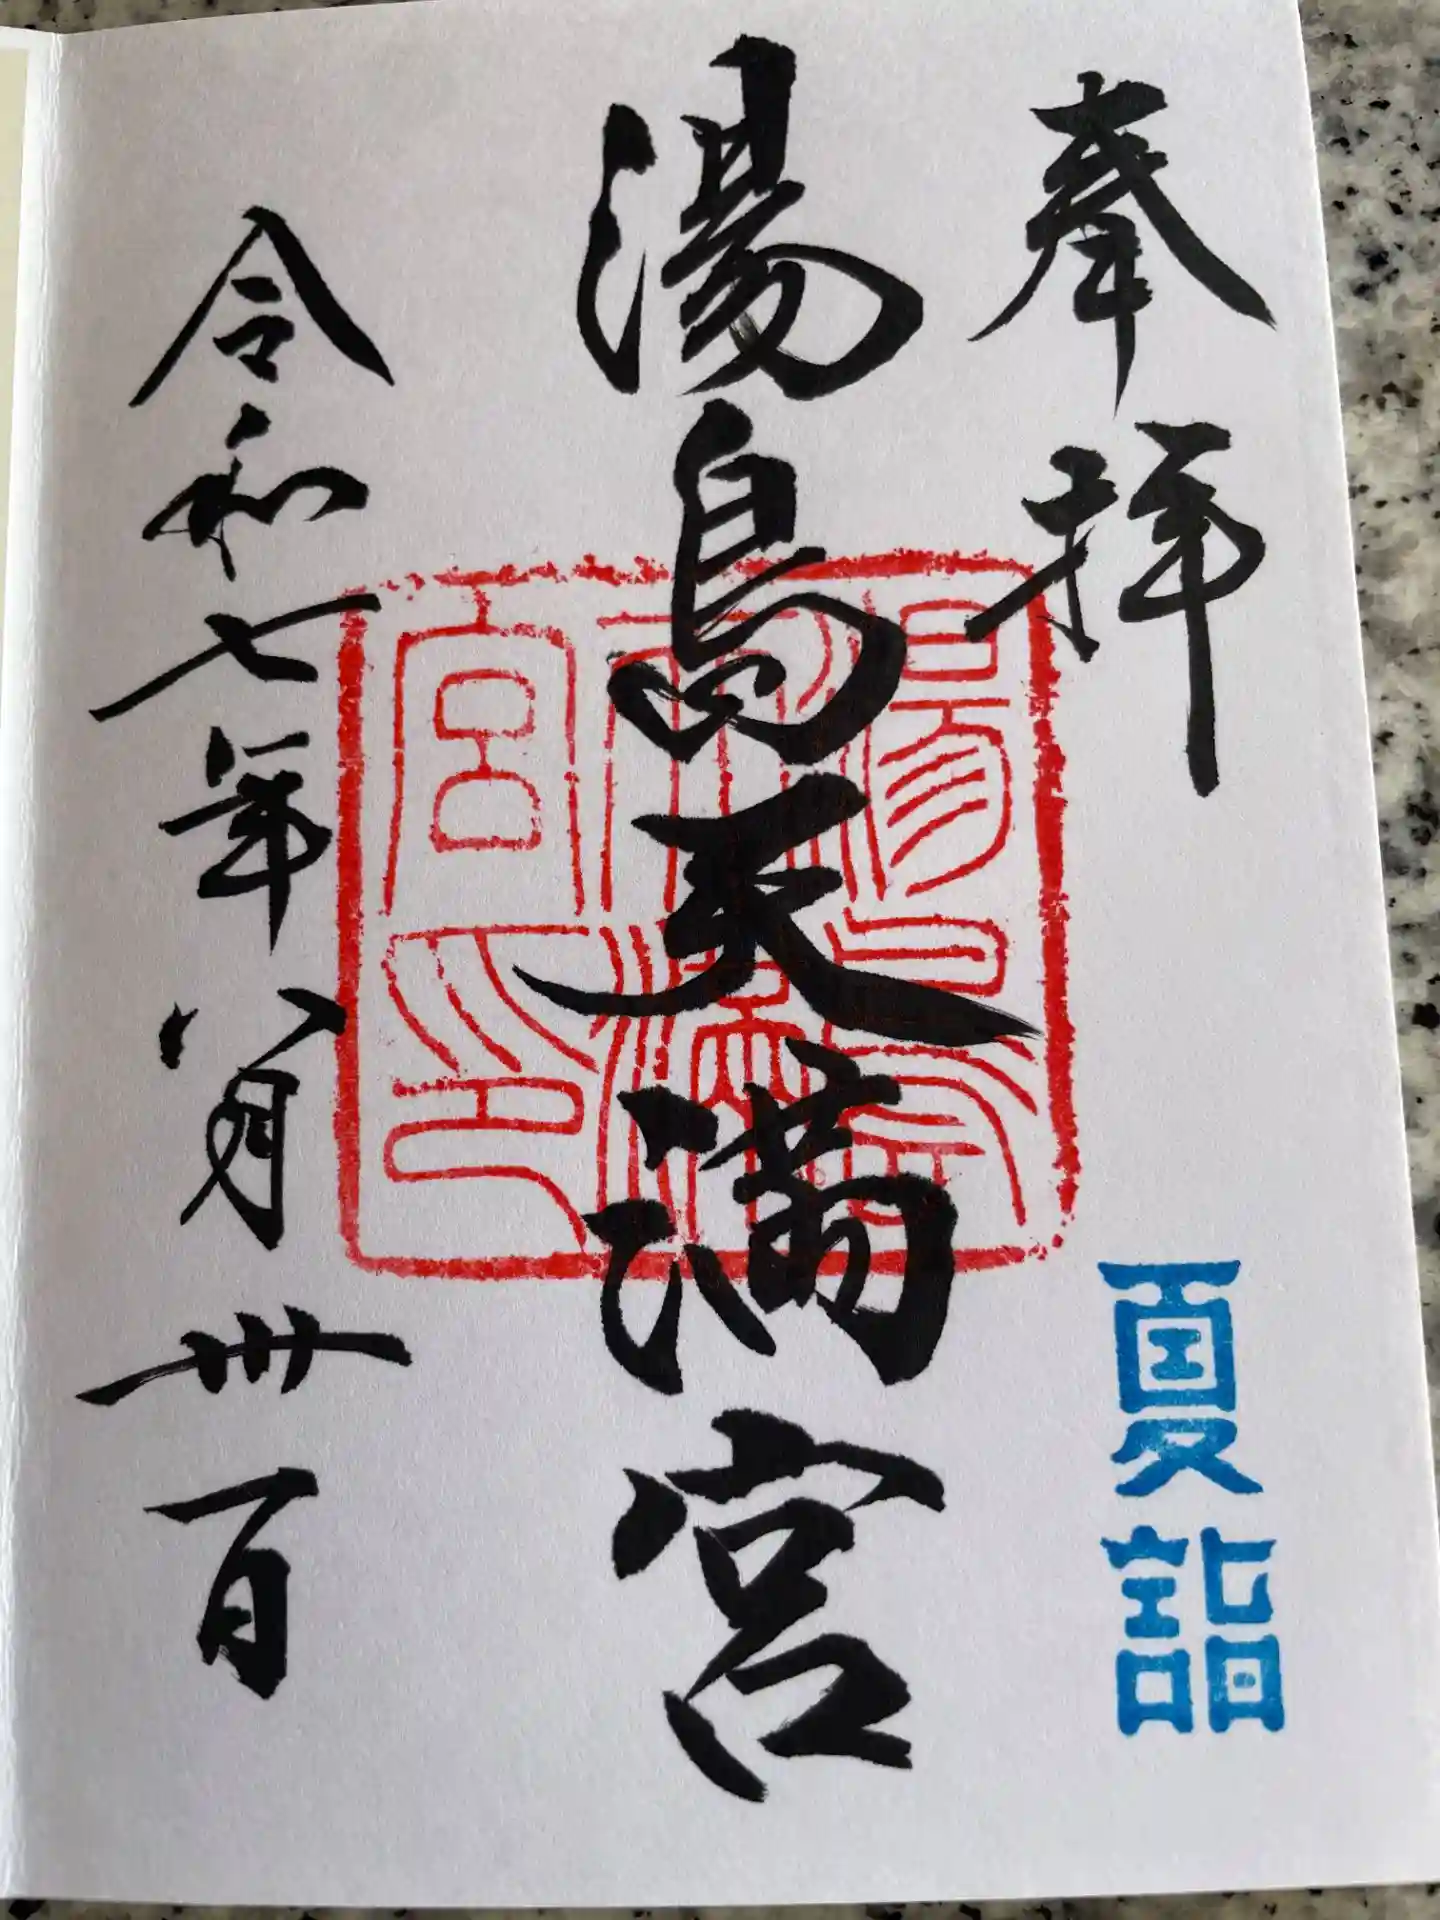 奉拝
夏詣
湯島天満宮
湯島
天満
宮印
令和七年八月卅一日